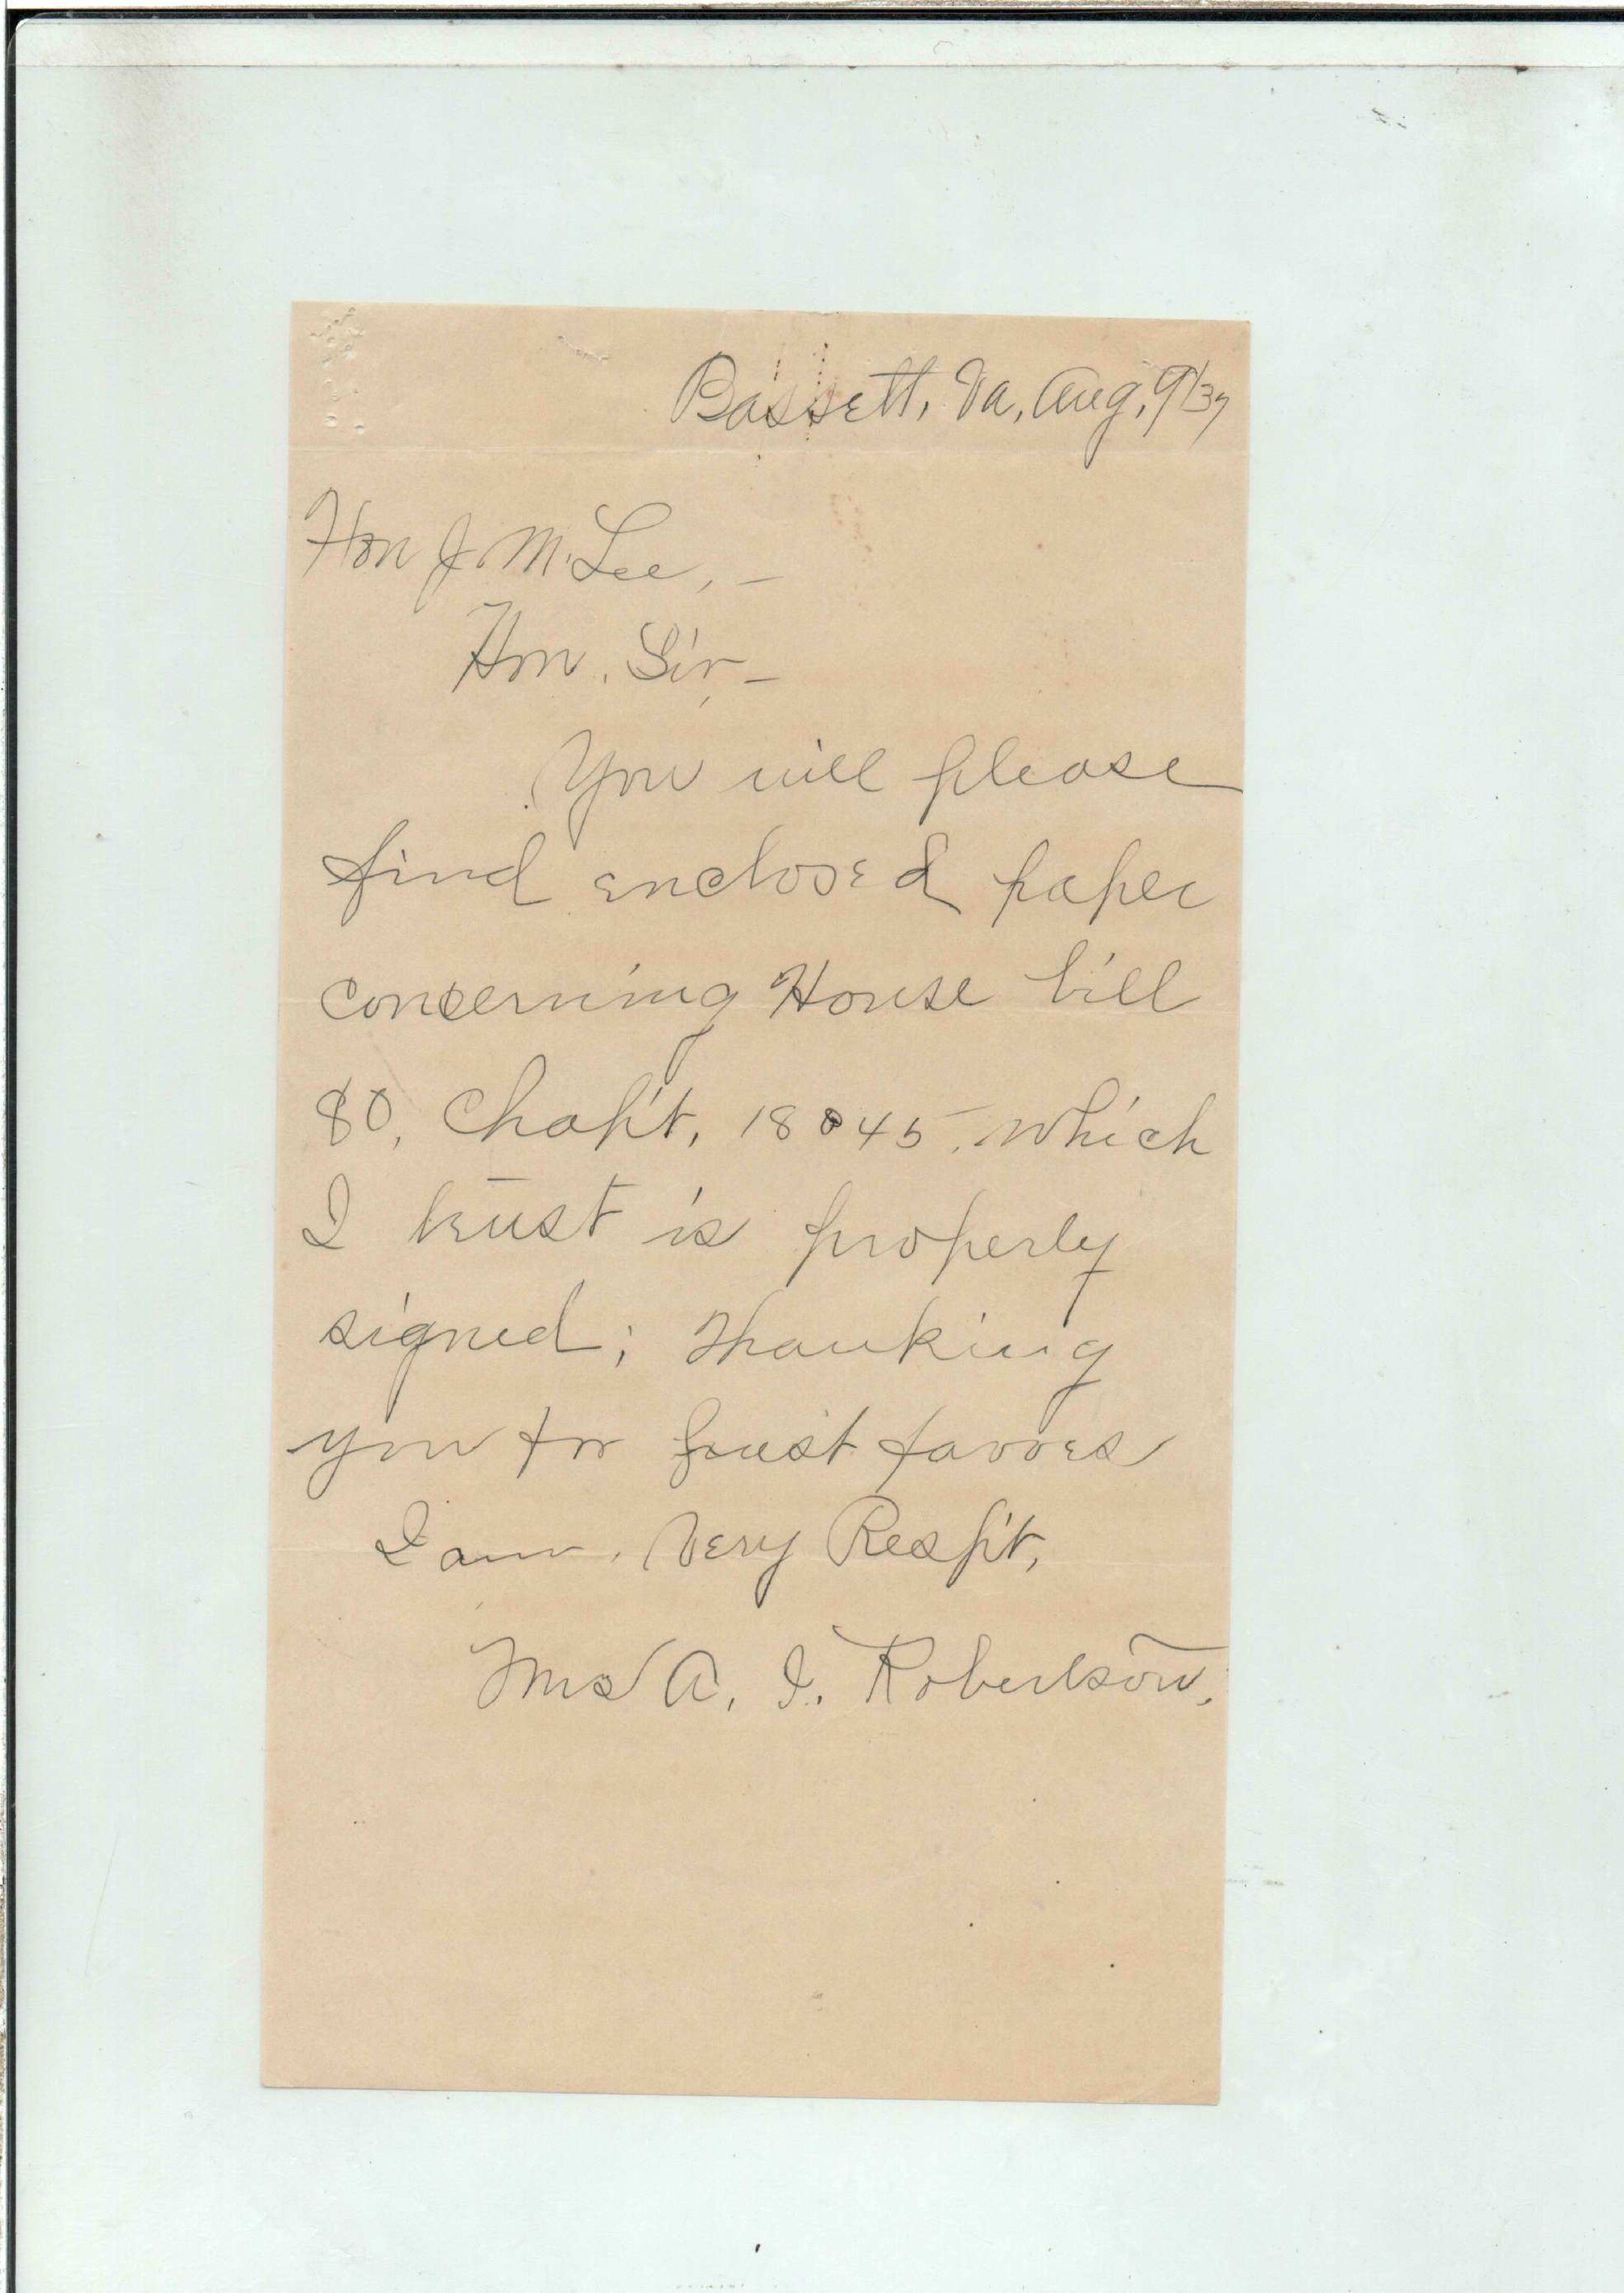 Bassett, Va, Aug, 9/37
Hon J. M. Lee, –
Hon. Sir, –
You will please
find enclosed paper
concerning House bill
80, Chap't, 18045, which
I trust is properly
signed; Thanking
you for past favors
I am, Very Resp't,
Mrs A. I. Robertson,